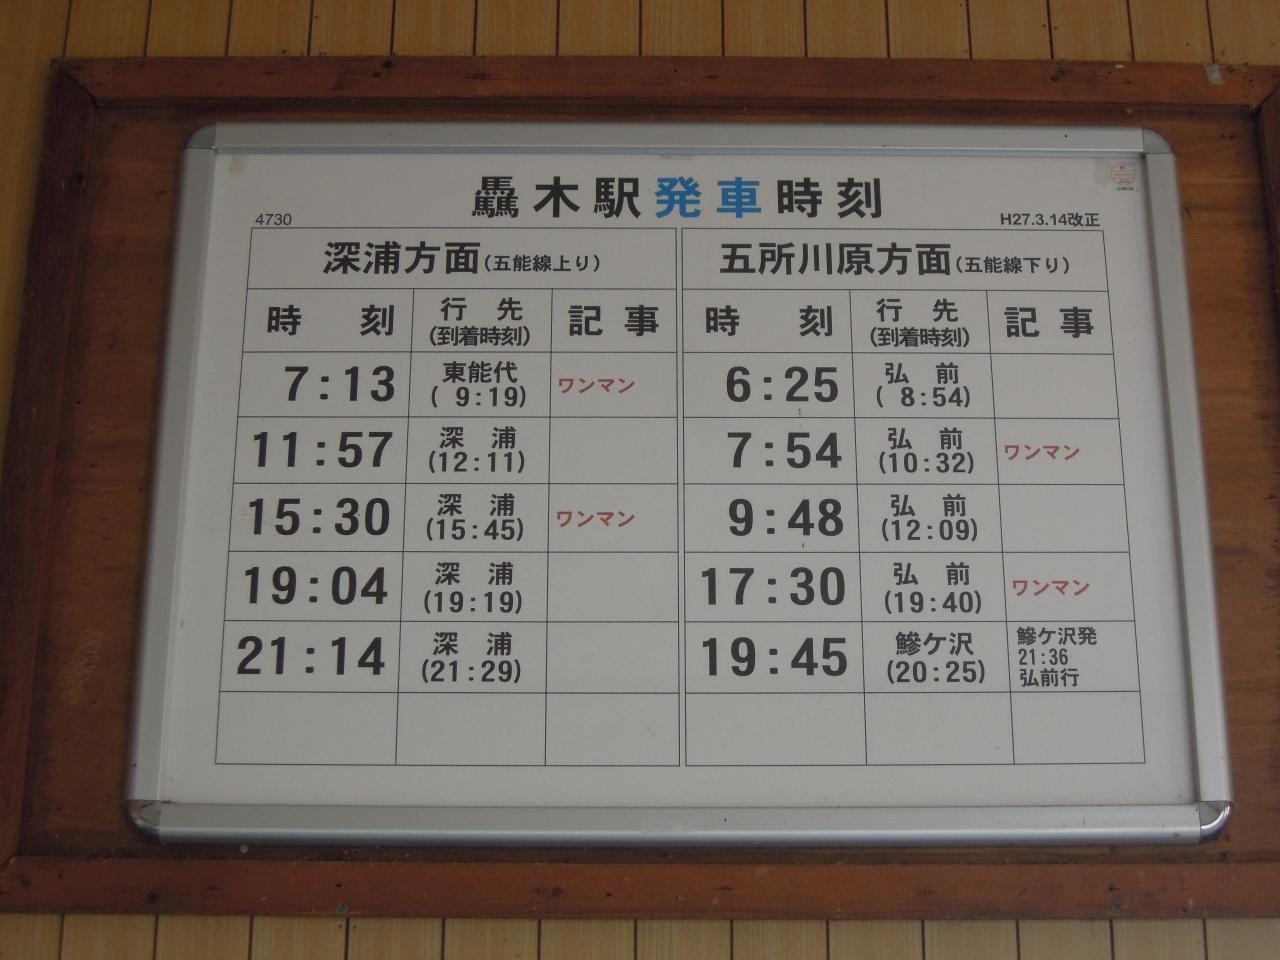 驫木駅発車時刻
4730
H27.3.14改正
深浦方面(五能線上り)
時刻 行先(到着時刻) 記事
7:13 東能代(9:19) ワンマン
11:57 深浦(12:11)
15:30 深浦(15:45) ワンマン
19:04 深浦(19:19)
21:14 深浦(21:29)
五所川原方面(五能線下り)
時刻 行先(到着時刻) 記事
6:25 弘前(8:54)
7:54 弘前(10:32) ワンマン
9:48 弘前(12:09)
17:30 弘前(19:40) ワンマン
19:45 鰺ケ沢(20:25) 鰺ケ沢発 21:36 弘前行